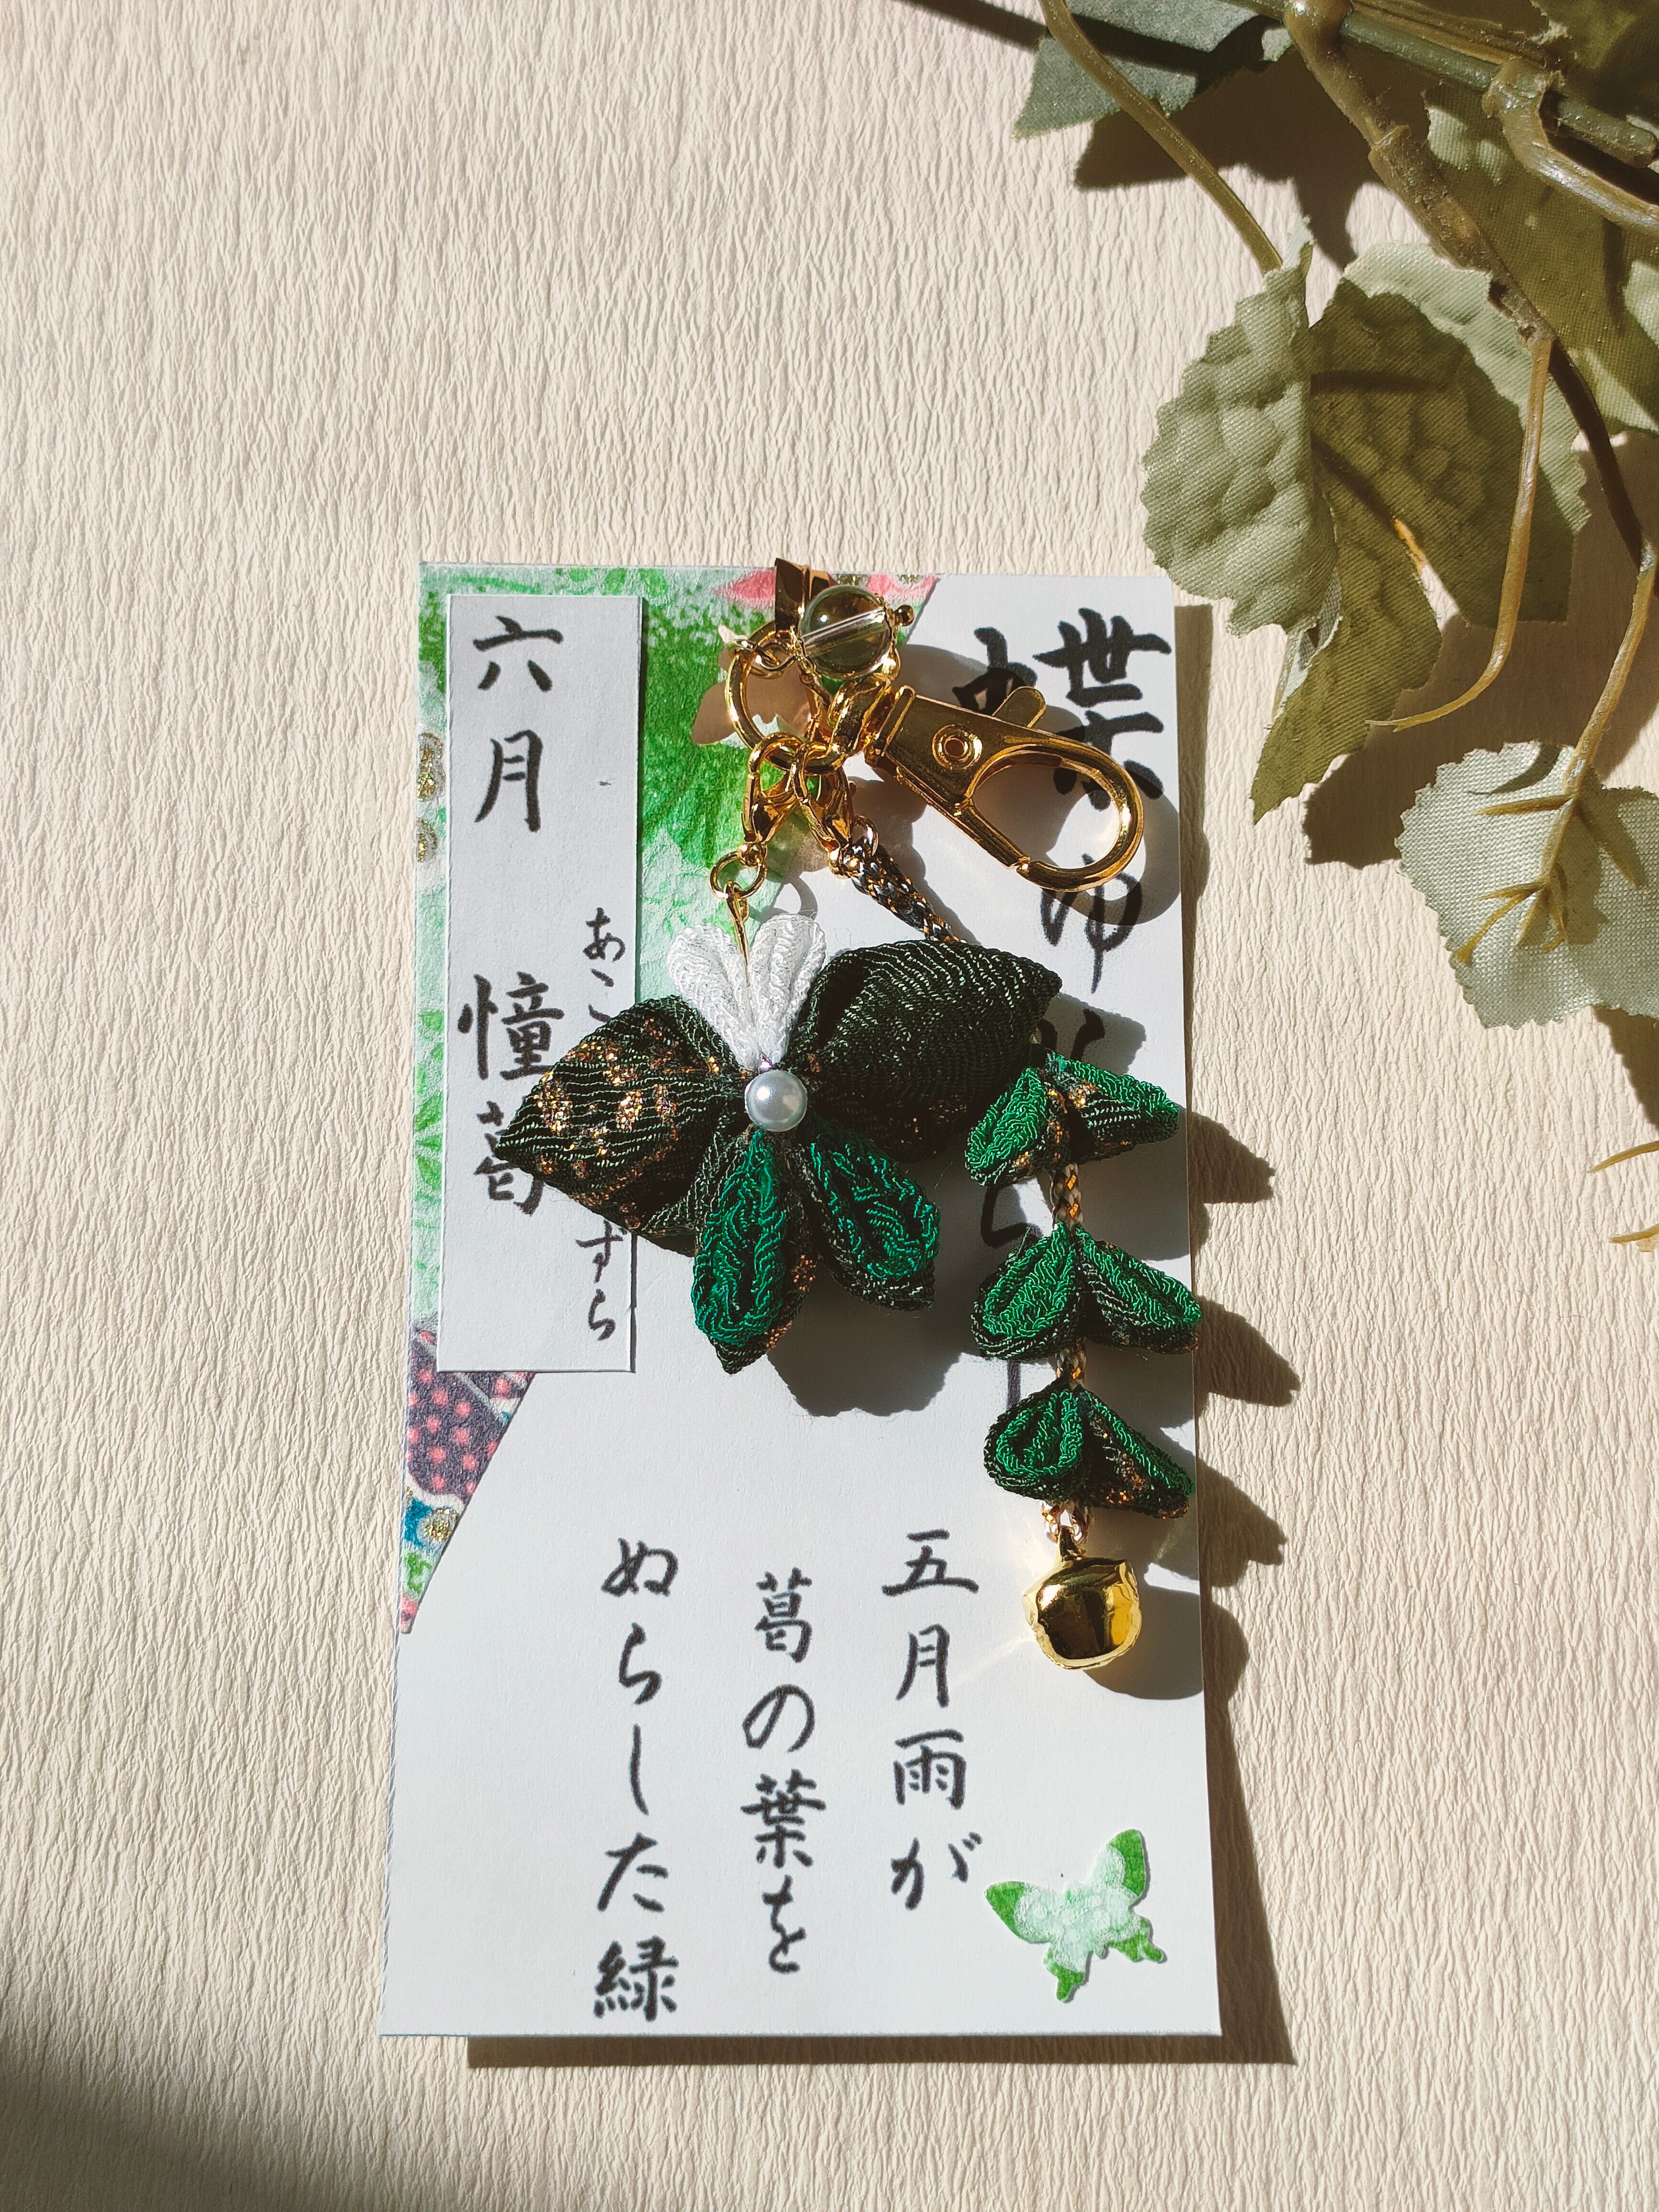 蝶ゆ
五月雨が
葛の葉を
ぬらした緑
六月 憧葛
あこ ずら